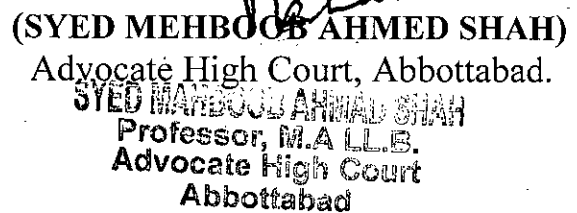 (SYED MEHBOOB AHMED SHAH)
Advocate High Court, Abbottabad.
SYED MAHBOOB AHMAD SHAH
Professor, M.A LL.B.
Advocate High Court
Abbottabad